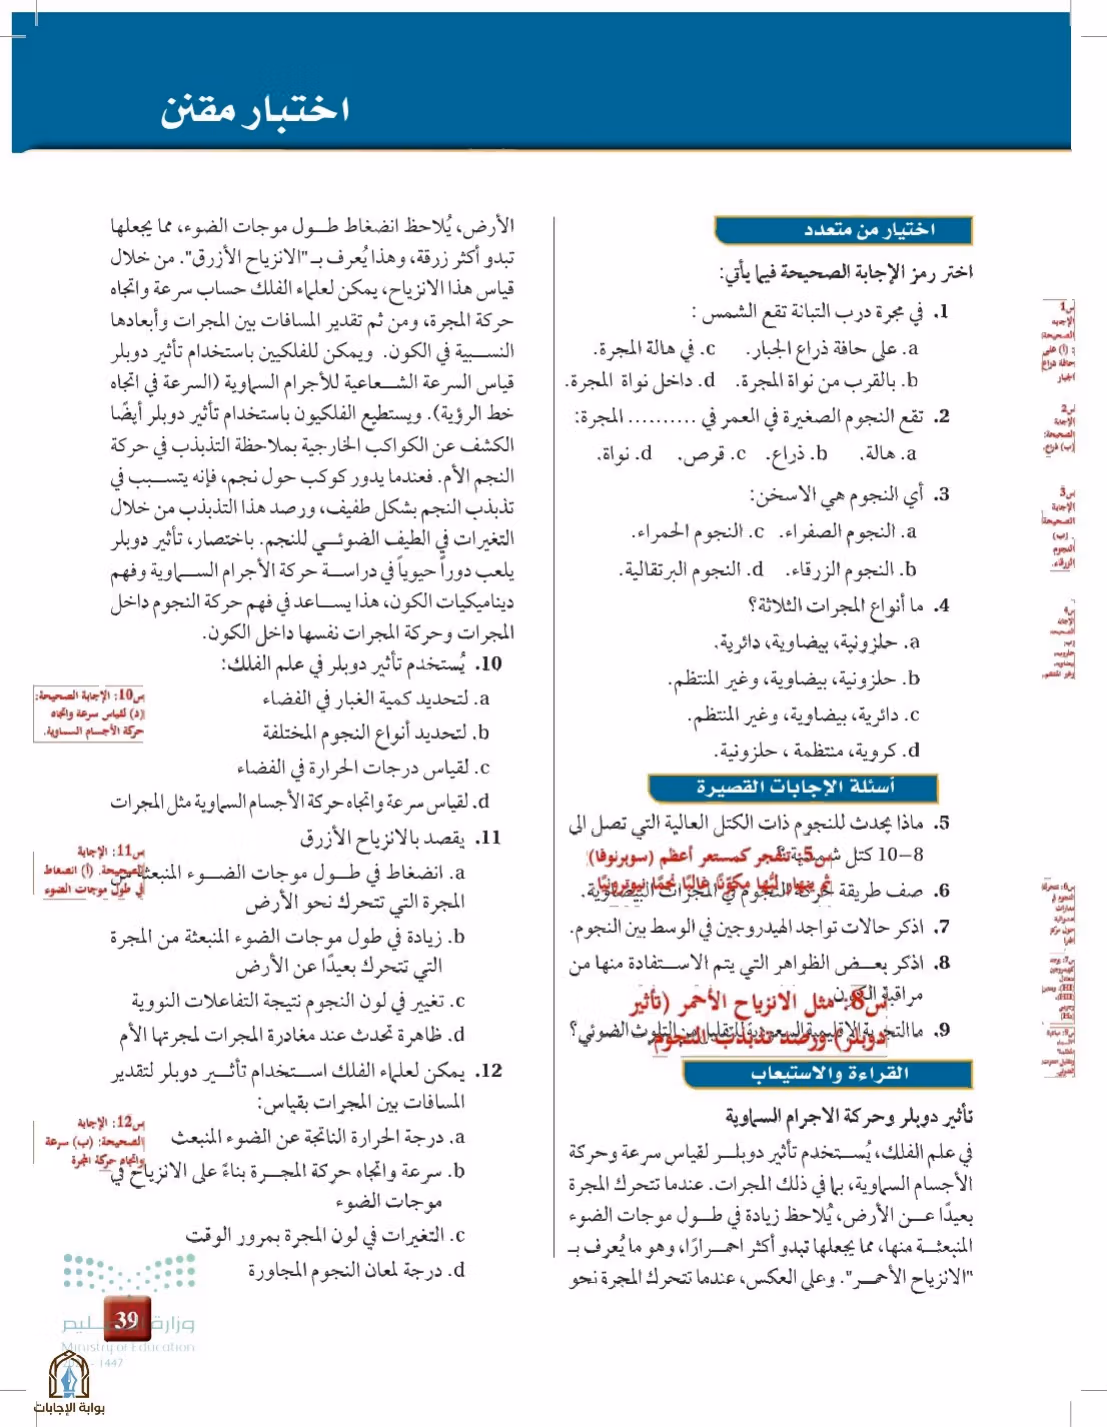 اختبار مقنن
اختيار من متعدد
اختر رمز الإجابة الصحيحة فيما يأتي:
1. في مجرة درب التبانة تقع الشمس :
a. على حافة ذراع الجبار. c. في هالة المجرة.
b. بالقرب من نواة المجرة. d. داخل نواة المجرة.
2. تقع النجوم الصغيرة في العمر في .......... المجرة:
a. هالة. b. ذراع. c. قرص. d. نواة.
3. أي النجوم هي الاسخن:
a. النجوم الصفراء. c. النجوم الحمراء.
b. النجوم الزرقاء. d. النجوم البرتقالية.
4. ما أنواع المجرات الثلاثة؟
a. حلزونية، بيضاوية، دائرية.
b. حلزونية، بيضاوية، وغير المنتظم.
c. دائرية، بيضاوية، وغير المنتظم.
d. كروية، منتظمة ، حلزونية.
أسئلة الإجابات القصيرة
5. ماذا يحدث للنجوم ذات الكتل العالية التي تصل الى
8–10 كتل شمسية؟
س5: تنفجر كمستعر أعظم (سوبرنوفا)
ثم ينهار لبُّها مكوّنًا غالبًا نجمًا نيوترونيًا
6. صف طريقة حركة النجوم في المجرات البيضاوية.
7. اذكر حالات تواجد الهيدروجين في الوسط بين النجوم.
8. اذكر بعض الظواهر التي يتم الاستفادة منها من
مراقبة الكون.
س8: مثل الانزياح الأحمر (تأثير
دوبلر) ورصد تذبذب النجوم
9. ما التجربة الإقليمية السعودية للتقليل من التلوث الضوئي؟
القراءة والاستيعاب
تأثير دوبلر وحركة الاجرام السماوية
في علم الفلك، يُستخدم تأثير دوبلر لقياس سرعة وحركة
الأجسام السماوية، بما في ذلك المجرات. عندما تتحرك المجرة
بعيدًا عن الأرض، يُلاحظ زيادة في طول موجات الضوء
المنبعثة منها، مما يجعلها تبدو أكثر احمرارًا، وهو ما يُعرف بـ
"الانزياح الأحمر". وعلى العكس، عندما تتحرك المجرة نحو
الأرض، يُلاحظ انضغاط طول موجات الضوء، مما يجعلها
تبدو أكثر زرقة، وهذا يُعرف بـ "الانزياح الأزرق". من خلال
قياس هذا الانزياح، يمكن لعلماء الفلك حساب سرعة واتجاه
حركة المجرة، ومن ثم تقدير المسافات بين المجرات وأبعادها
النسبية في الكون. ويمكن للفلكيين باستخدام تأثير دوبلر
قياس السرعة الشعاعية للأجرام السماوية (السرعة في اتجاه
خط الرؤية). ويستطيع الفلكيون باستخدام تأثير دوبلر أيضًا
الكشف عن الكواكب الخارجية بملاحظة التذبذب في حركة
النجم الأم. فعندما يدور كوكب حول نجم، فإنه يتسبب في
تذبذب النجم بشكل طفيف، ورصد هذا التذبذب من خلال
التغيرات في الطيف الضوئي للنجم. باختصار، تأثير دوبلر
يلعب دوراً حيوياً في دراسة حركة الأجرام السماوية وفهم
ديناميكيات الكون، هذا يساعد في فهم حركة النجوم داخل
المجرات وحركة المجرات نفسها داخل الكون.
10. يُستخدم تأثير دوبلر في علم الفلك:
a. لتحديد كمية الغبار في الفضاء
b. لتحديد أنواع النجوم المختلفة
c. لقياس درجات الحرارة في الفضاء
d. لقياس سرعة واتجاه حركة الأجسام السماوية مثل المجرات
11. يقصد بالانزياح الأزرق
a. انضغاط في طول موجات الضوء المنبعثة من
المجرة التي تتحرك نحو الأرض
b. زيادة في طول موجات الضوء المنبعثة من المجرة
التي تتحرك بعيدًا عن الأرض
c. تغيير في لون النجوم نتيجة التفاعلات النووية
d. ظاهرة تحدث عند مغادرة المجرات لمجرتها الأم
12. يمكن لعلماء الفلك استخدام تأثير دوبلر لتقدير
المسافات بين المجرات بقياس:
a. درجة الحرارة الناتجة عن الضوء المنبعث
b. سرعة واتجاه حركة المجرة بناءً على الانزياح في
موجات الضوء
c. التغيرات في لون المجرة بمرور الوقت
d. درجة لمعان النجوم المجاورة
س1
الإجابة
الصحيحة:
(أ) على
حافة ذراع
الجبار
س2
الإجابة
الصحيحة:
(ب) ذراع.
س3
الإجابة
الصحيحة:
(ب)
النجوم
الزرقاء.
س10: الإجابة الصحيحة:
(د) لقياس سرعة واتجاه
حركة الأجسام السماوية.
س11: الإجابة
الصحيحة: (أ) انضغاط
في طول موجات الضوء
س12: الإجابة
الصحيحة: (ب) سرعة
واتجاه حركة المجرة
وزارة التعليم
Ministry of Education
1447
39
بوابة الإجابات